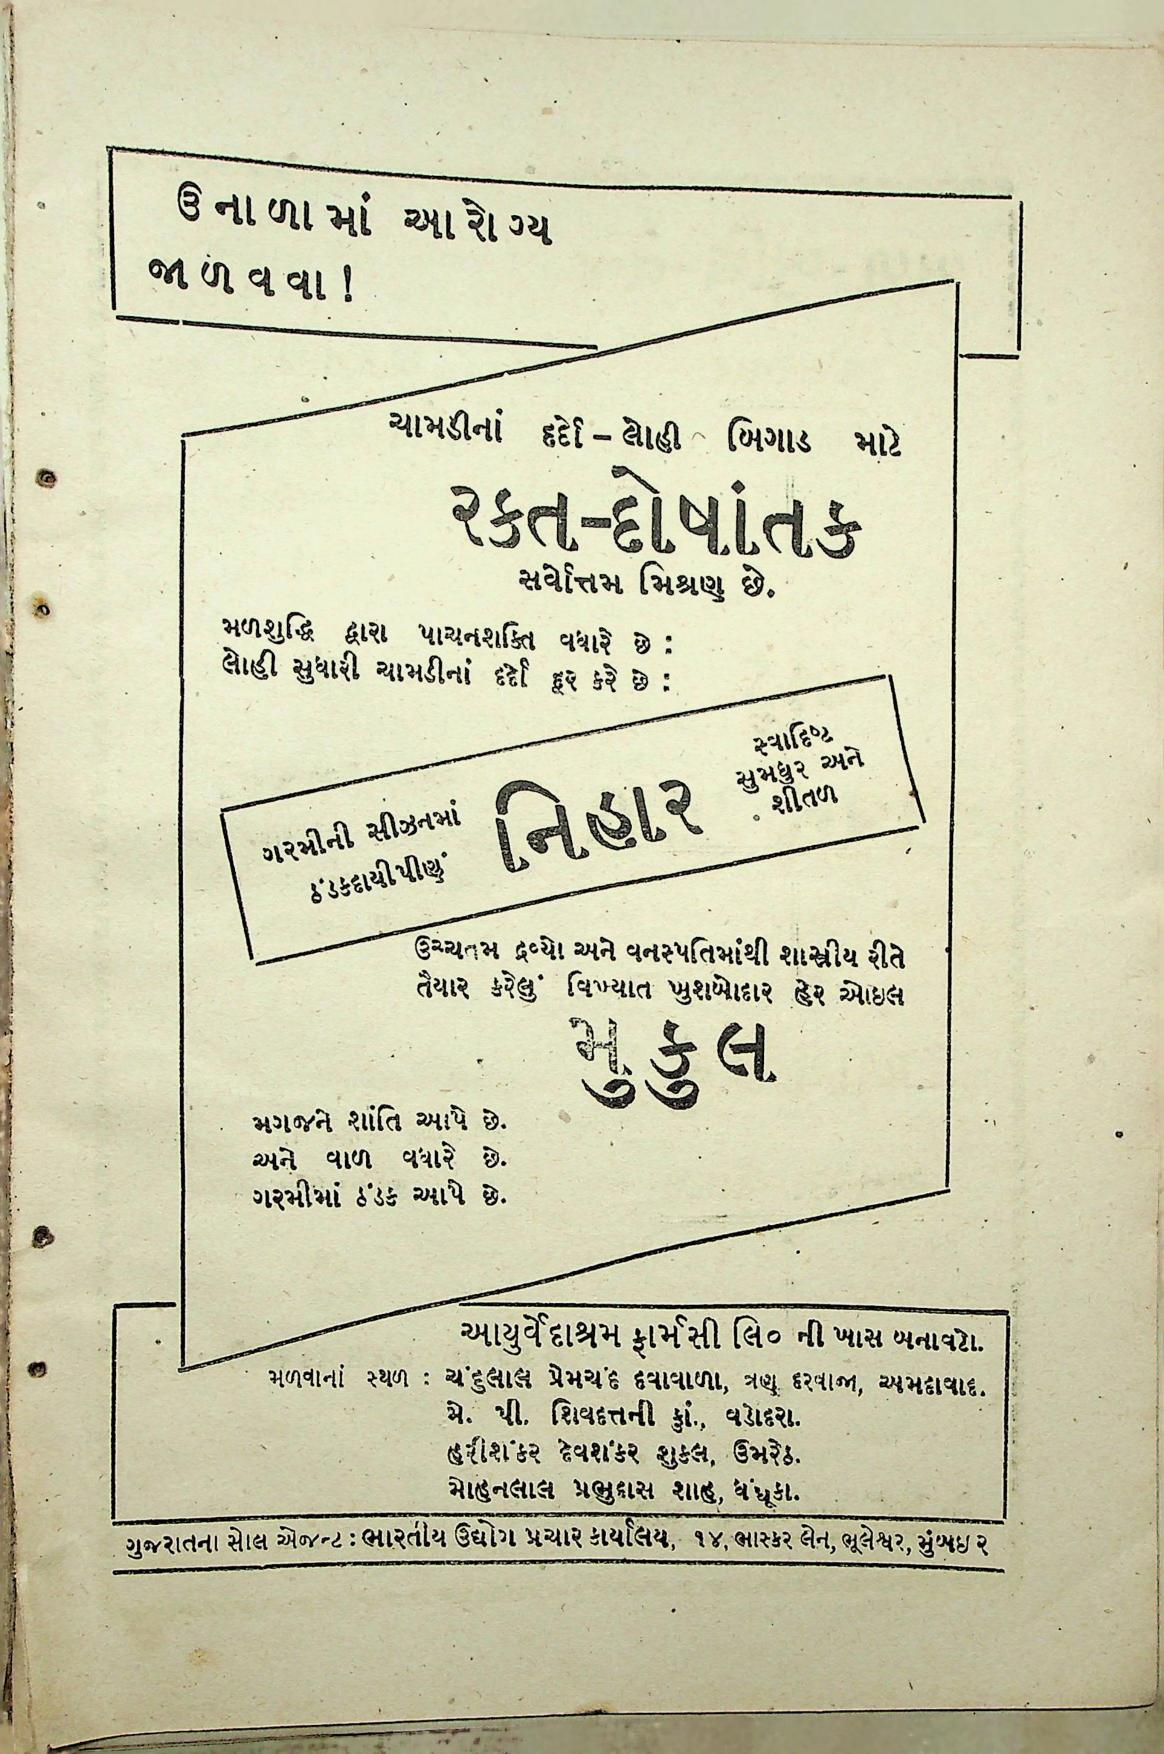 ઉનાળામાં આરોગ્ય
જાળવવા !
ચામડીનાં દર્દો – લોહી બિગાડ માટે
રક્ત-દોષાંતક
સર્વોત્તમ મિશ્રણ છે.
મળશુદ્ધિ દ્વારા પાચનશક્તિ વધારે છે :
લોહી સુધારી ચામડીનાં દર્દો દૂર કરે છે :
ગરમીની સીઝનમાં
ઠંડકદાયીપીણું
નિહાર
સ્વાદિષ્ટ
સુમધુર અને
શીતળ
ઉચ્ચતમ દ્રવ્યો અને વનસ્પતિમાંથી શાસ્ત્રીય રીતે
તૈયાર કરેલું વિખ્યાત ખુશબોદાર હેર ઓઇલ
મુકુલ
મગજને શાંતિ આપે છે.
અને વાળ વધારે છે.
ગરમીમાં ઠંડક આપે છે.
આયુર્વેદાશ્રમ ફાર્મસી લિ૦ ની ખાસ બનાવટો.
મળવાનાં સ્થળ : ચંદુલાલ પ્રેમચંદ દવાવાળા, ત્રણ દરવાજા, અમદાવાદ.
મે. પી. શિવદત્તની કું., વડોદરા.
હરીશંકર દેવશંકર શુકલ, ઉમરેઠ.
મોહનલાલ પ્રભુદાસ શાહ, ધંધૂકા.
ગુજરાતના સોલ એજન્ટ : ભારતીય ઉદ્યોગ પ્રચાર કાર્યાલય, ૧૪, ભાસ્કર લેન, ભૂલેશ્વર, મુંબઇ ૨